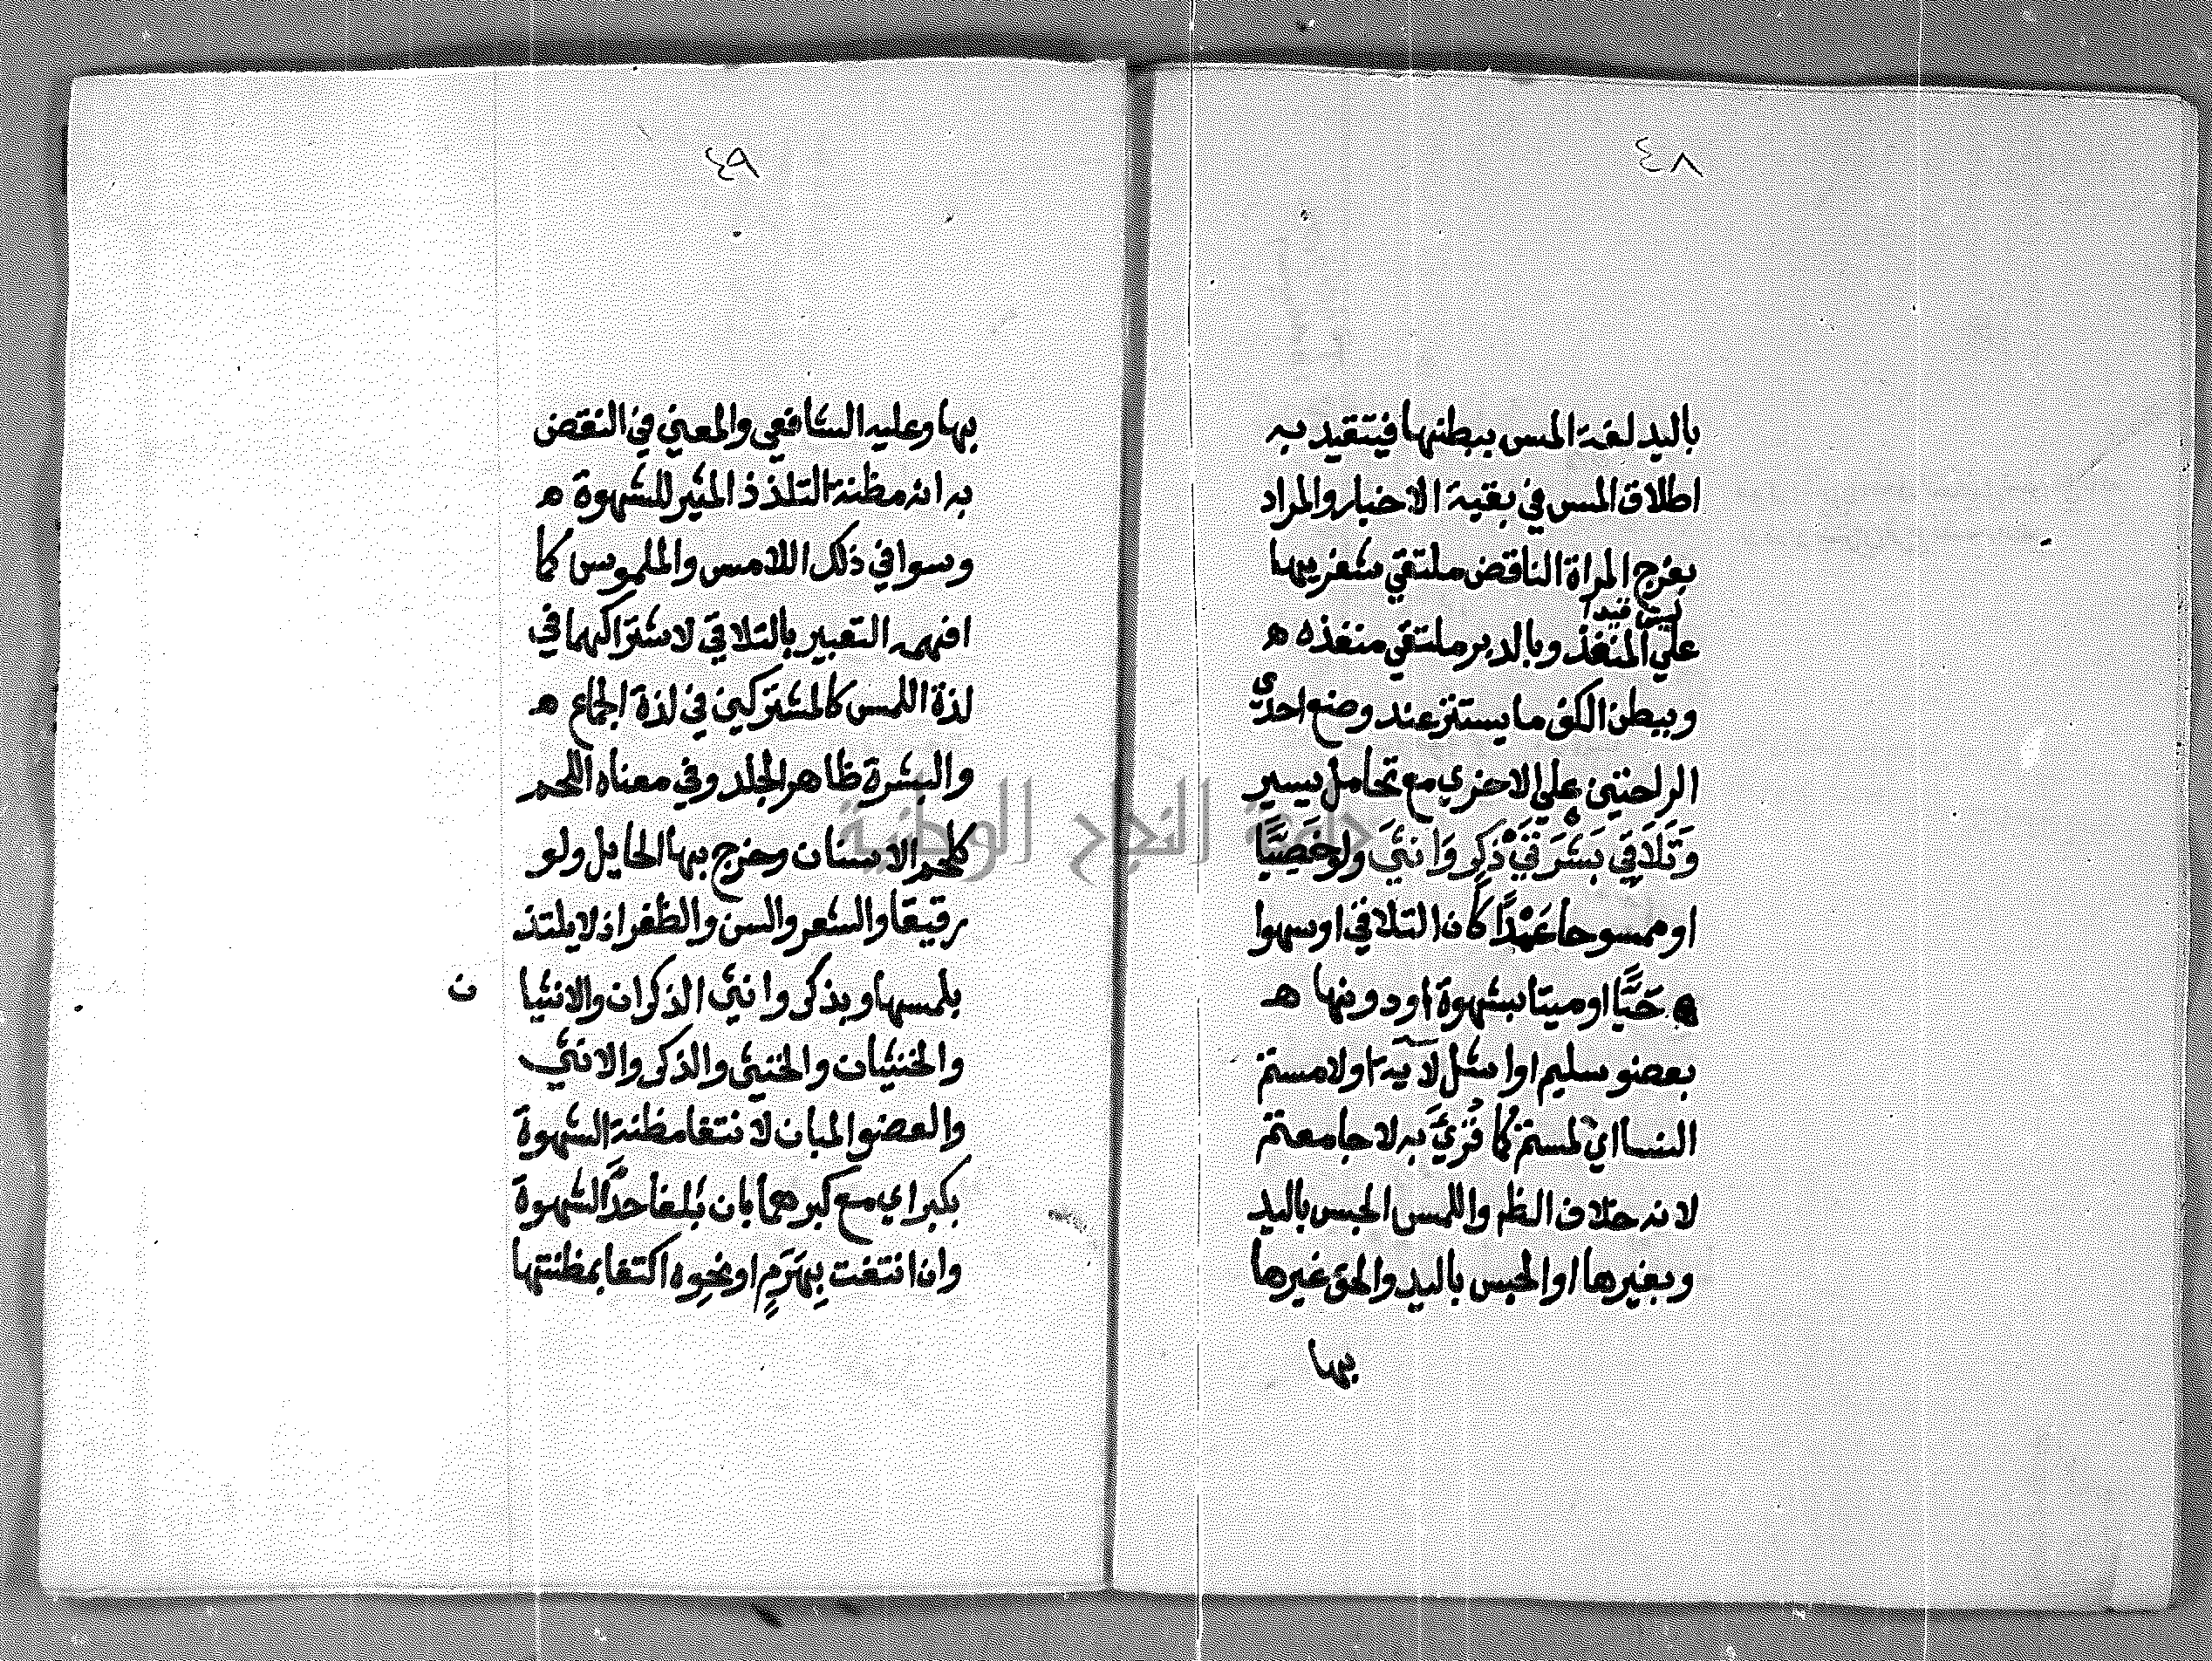 ٤٨
باليد لغة المس ببطنها فيتقيد به
اطلاق المس في بقية الاخبار والمراد
بفرج المراة الناقض ملتقي شفريها
علي المنفذ وبالدبر ملتقي منفذه ه
وببطن الكف ما يستتر عند وضع احدى
الراحتين علي الاخري مع تحامل يسير
وَتَلَاقِي بَشَرَتَيْ ذَكَرٍ وَانثَي ولو خَصِيًّا
او ممسوحا عَمْدًا كان التلاقي او سهوا
حَيًّا او ميتا بشهوة او دونها ه
بعضو سليم او اشل لآية اولامستم
النسا اي لمستم كما قُرِيَ به لا جامعتم
لانه خلاف الظم واللمس الجس باليد
وبغيرها او الجس باليد والحق غيرها
بها
٤٩
بها وعليه الشافعي والمعني في النقض
به انه مظنة التلذذ المثير للشهوة ه
وسوا في ذلك اللامس والملموس كما
افهمه التعبير بالتلاقي لاشتراكهما في
لذة اللمس كالمشتركين في لذة الجماع ه
والبشرة ظاهر الجلد وفي معناه اللحم
كلحم الاسنان وخرج بها الحايل ولو
رقيقا والشعر والسن والظفر اذ لا يلتذ
بلمسها وبذكر وانثي الذكران والانثيا ن
والخنثيان والخنثي والذكر والانثي
والعضو المبان لانتفا مظنة الشهوة
بكبر اي مع كبرهما بان بلغا حدَّ الشهوة
وان انتفت بِهَرَمٍ او نحوه اكتفا بمظنتها
جامعة النجاح الوطنية